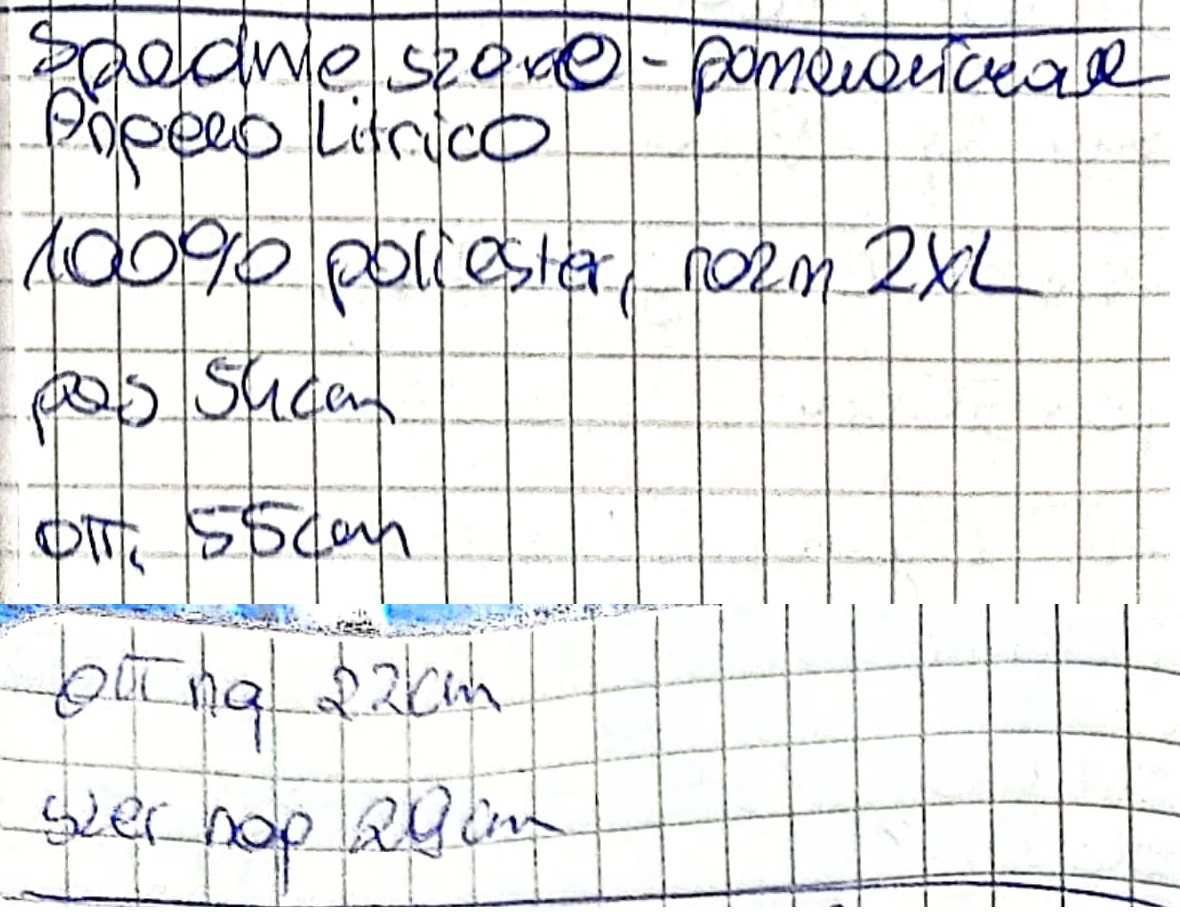 Spodnie szare - pomarańczowe
Angelo Litrico
100% poliester, rozm 2XL
pas 54cm
om. 55cm
ng 22cm
szer nog 29cm